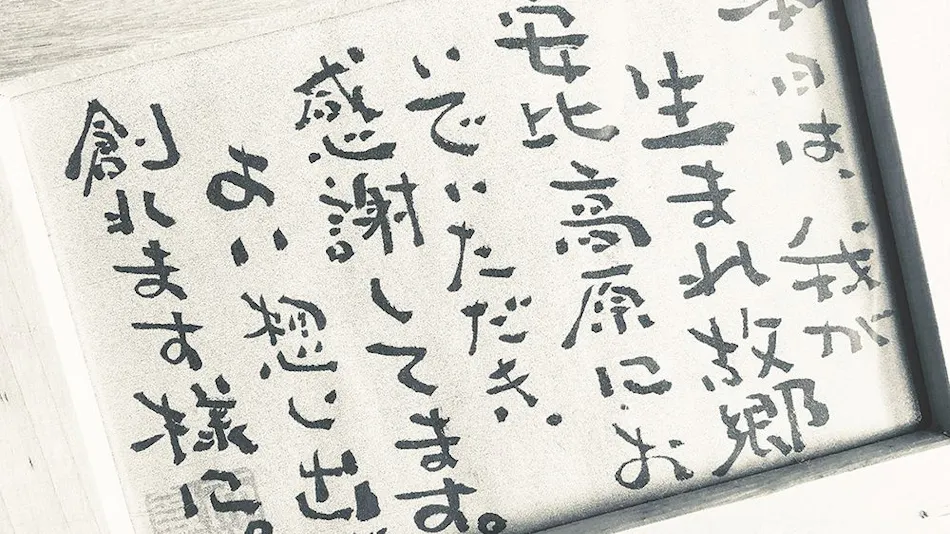 本日は、我が
生まれ故郷
安比高原にお
いでいただき、
感謝してます。
よい想い出
創れます様に。